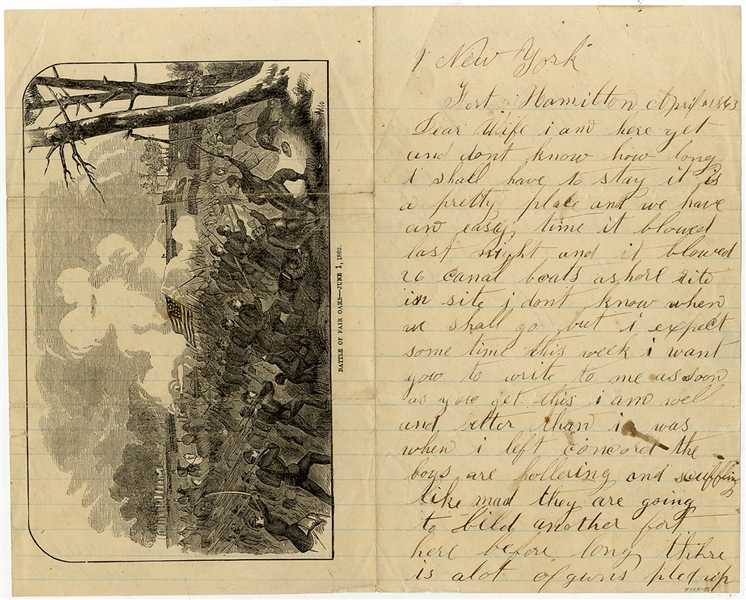 BATTLE OF FAIR OAKS—JUNE 1, 1862.
New York
Fort Hamilton April 1863
Dear Wife i am here yet
and dont know how long
i shall have to stay it is
a pretty place and we have
an easy time it blowed
last night and it blowed
26 canal boats ashore rite
in site i dont know when
we shall go but i expect
some time this week i want
you to write to me as soon
as you get this i am well
and better than i was
when i left concord the
boys are hollering and scuffling
like mad they are going
to bild another fort
here before long thare
is alot of guns pled up